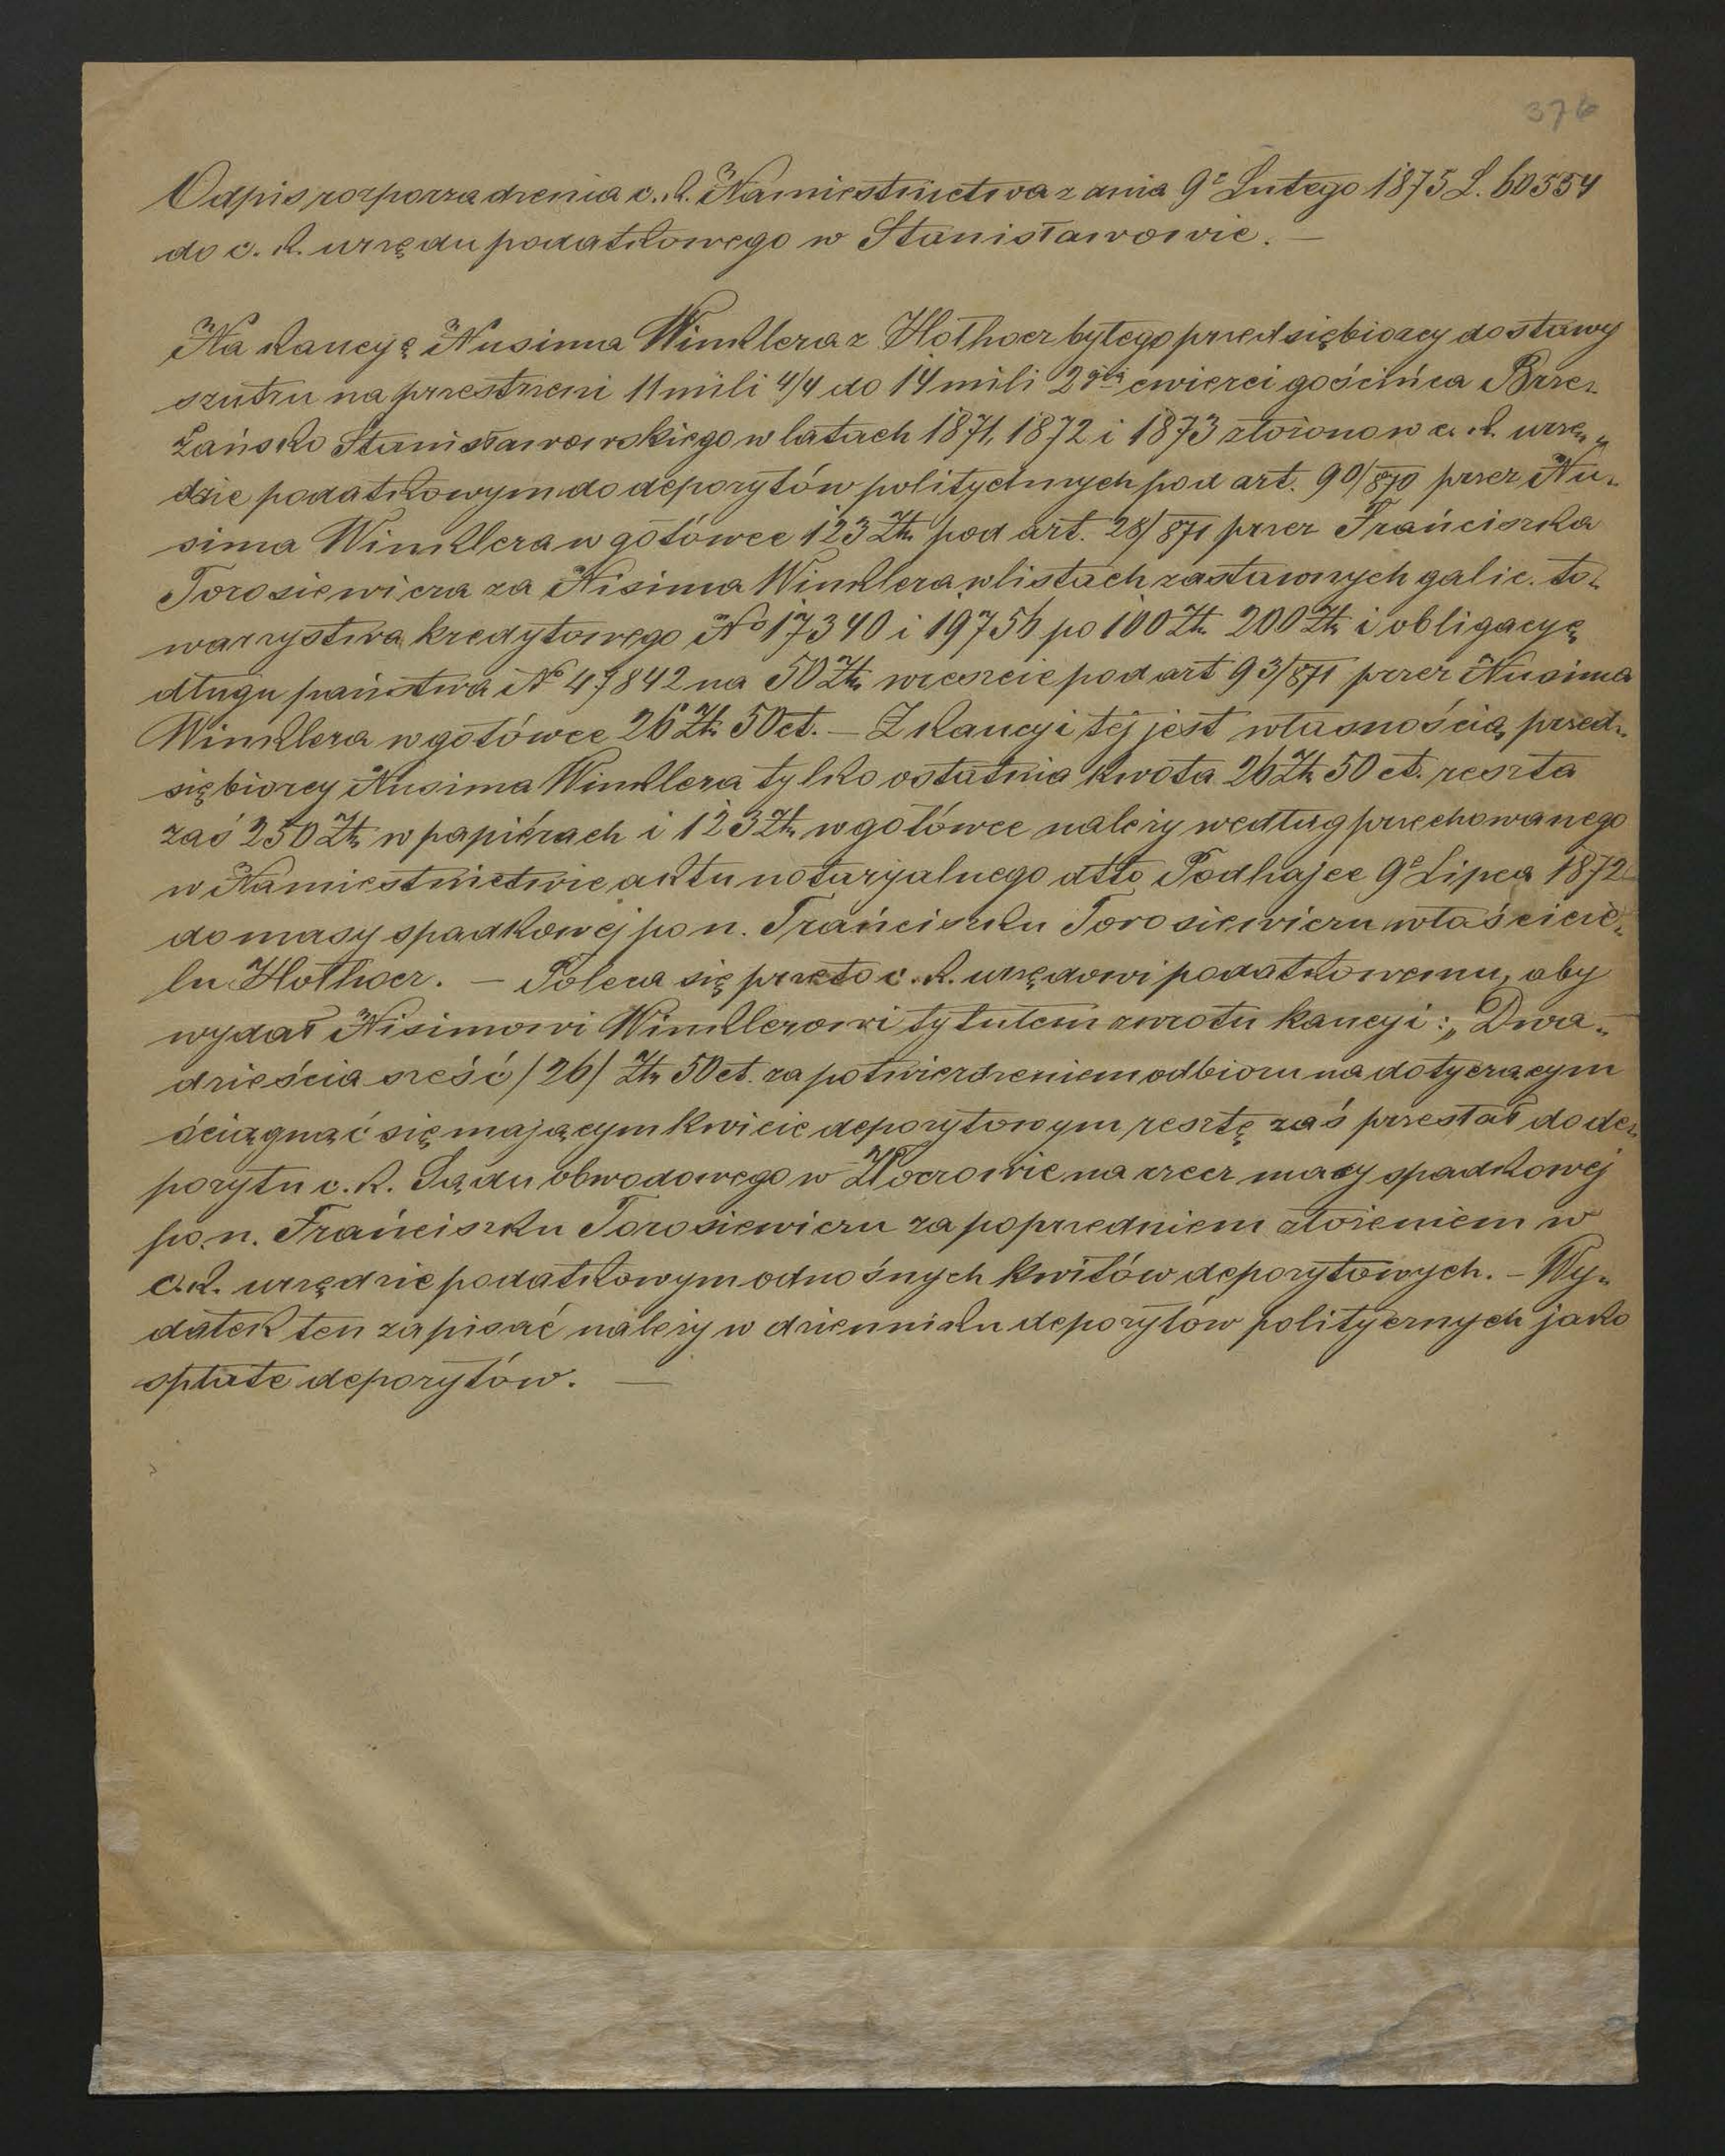 376
Odpis rozporzadzenia c. k. Namiestnictwa z dnia 9º Lutego 1875 L. 60554
do c. k. urzędu podatkowego w Stanisławowie. —
Na kaucyę Nusima Winklera z Hołhocz byłego przedsiębiorcy dostawy
szutru na przestrzeni 11 mili 4/4 do 14 mili 2giej ćwierci gościńca Brze-
żańsko Stanisławowskiego w latach 1871, 1872 i 1873 złożono w c. k. urzę-
dzie podatkowym do depozytów politycznych pod art. 90/870 przez Nu-
sima Winklera w gotówce 123 Złr. pod art. 28/871 przez Frańciszka
Torosiewicza za Nisima Winklera w listach zastawnych galic. to-
warzystwa kredytowego No 17340 i 19756 po 100 Złr. 200 Złr. i obligacyę
długu państwa No 47842 na 50 Złr. wreszcie pod art 93/871 przez Nusima
Winklera w gotówce 26 Złr. 50 ct. — Z kaucyi tej jest własnością przed-
siębiorcy Nusima Winklera tylko ostatnia kwota 26 Złr. 50 ct. reszta
zaś 250 Złr. w papiérach i 123 Złr. w gotówce należy według przechowanego
w Namiestnictwie aktu notaryjalnego dtto Podhajce 9º Lipca 1872
do masy spadkowéj po n. Frańciszku Torosiewiczu właścicie-
lu Hołhocz. — Poleca się przeto c. k. urzędowi podatkowemu, aby
wydał Nisimowi Winklerowi tytułem zwrotu kaucyi: „Dwa-
dzieścia sześć /26/ Złr. 50 ct. za potwierdzeniem odbioru na dotyczącym
ściągnąć się mającym kwicie depozytowym resztę zaś przesłał do de-
pozytu c. k. Sądu obwodowego w Złoczowie na rzecz masy spadkowej
po. n. Frańciszku Torosiewiczu za poprzedniem złożeniem w
c. k. urzędzie podatkowym odnośnych kwitów depozytowych. — Wy-
datek ten zapisać należy w dzienniku depozytów politycznych jako
spłate depozytów. —